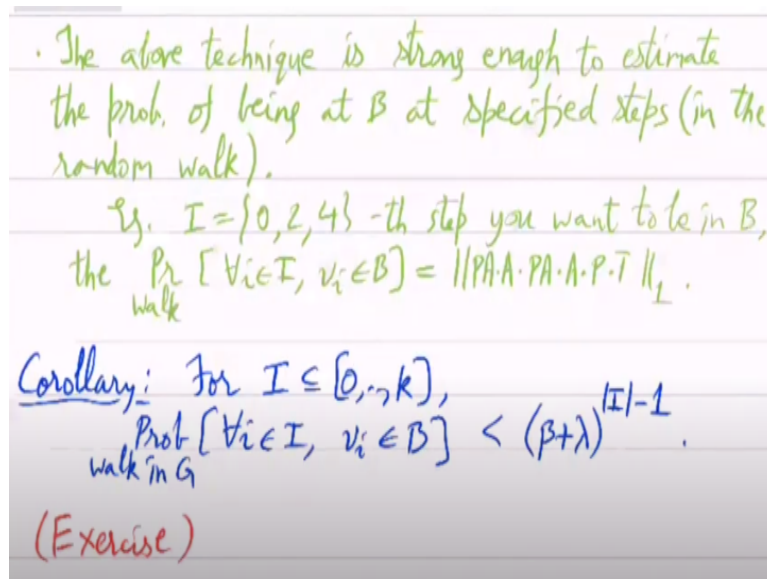 · The above technique is strong enough to estimate
the prob. of being at B at specified steps (in the
random walk).
Eg. I = {0,2,4} -th step you want to be in B,
the Pr [∀i∈I, vᵢ∈B] = ||PA·A·PA·A·P·1̄||₁ .
walk
Corollary: For I ⊆ [0,..,k],
Prob [∀i∈I, vᵢ∈B] < (β+λ)^{|I|-1} .
walk in G
(Exercise)